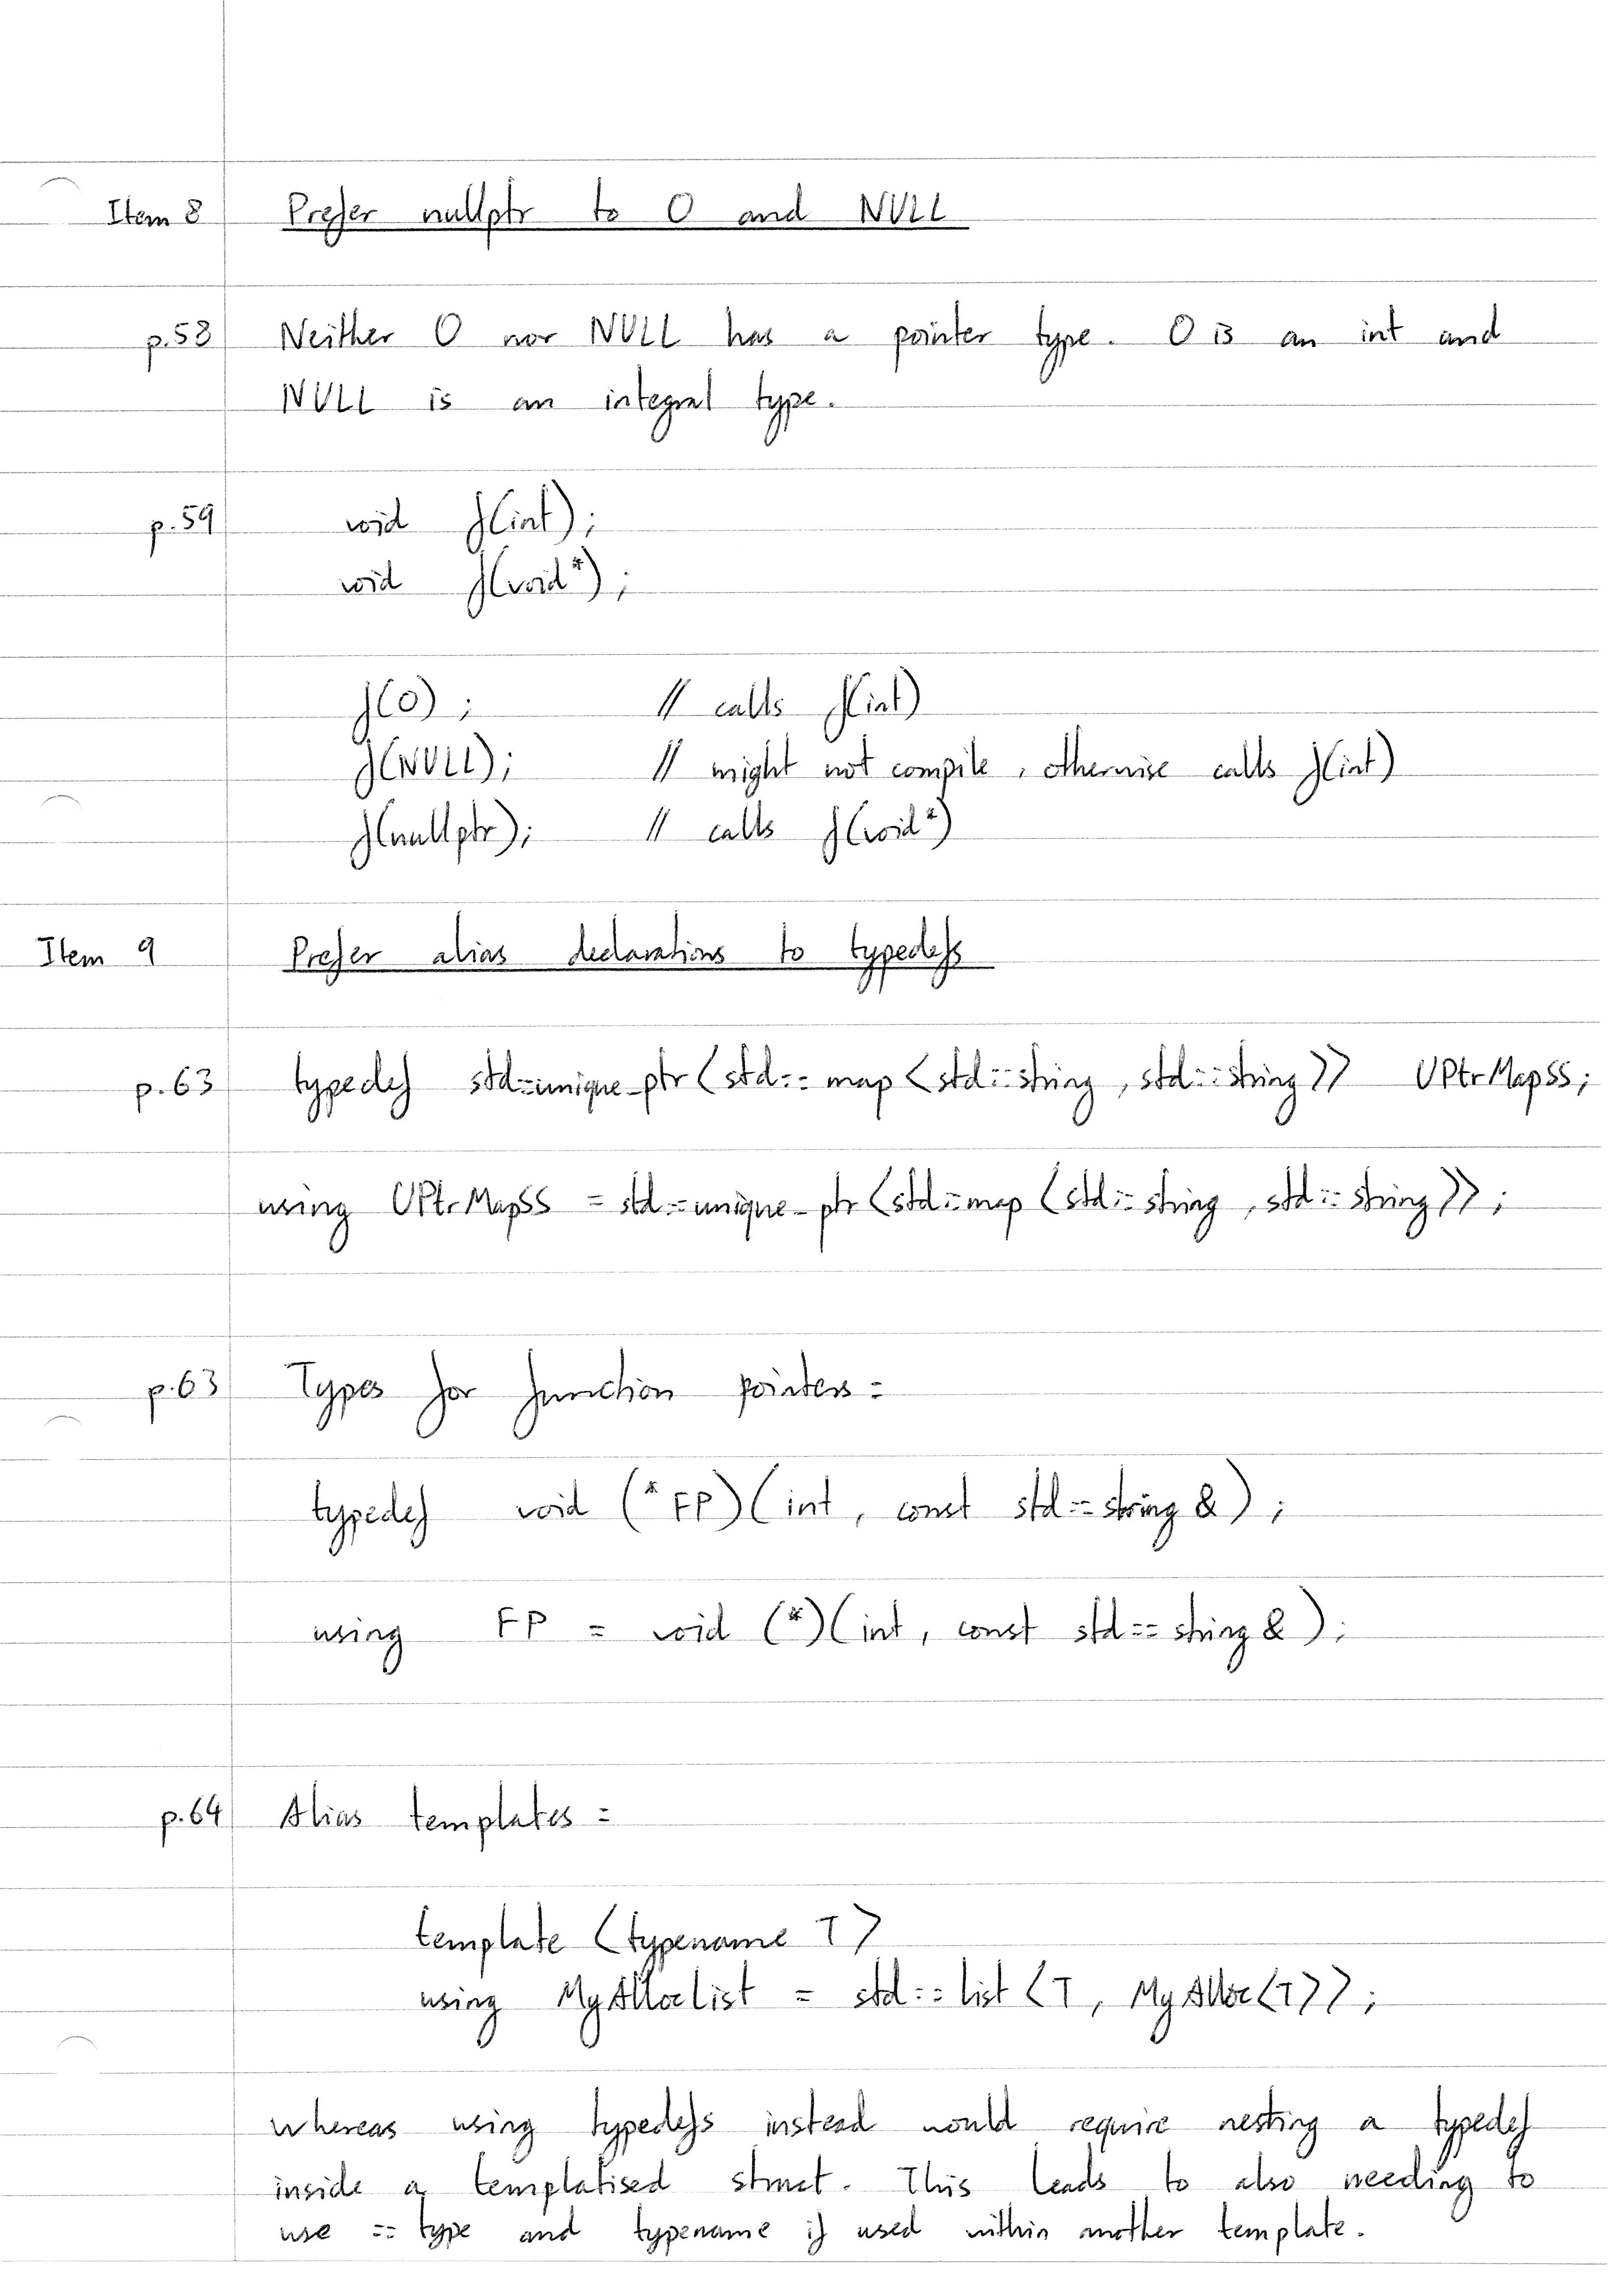 Item 8 Prefer nullptr to 0 and NULL
p.58 Neither 0 nor NULL has a pointer type. 0 is an int and
NULL is an integral type.
p.59 void f(int);
void f(void*);
f(0); // calls f(int)
f(NULL); // might not compile, otherwise calls f(int)
f(nullptr); // calls f(void*)
Item 9 Prefer alias declarations to typedefs
p.63 typedef std::unique_ptr<std::map<std::string, std::string>> UPtrMapSS;
using UPtrMapSS = std::unique_ptr<std::map<std::string, std::string>>;
p.63 Types for function pointers:
typedef void (*FP)(int, const std::string &);
using FP = void (*)(int, const std::string &);
p.64 Alias templates:
template <typename T>
using MyAllocList = std::list<T, MyAlloc<T>>;
whereas using typedefs instead would require nesting a typedef
inside a templatised struct. This leads to also needing to
use ::type and typename if used within another template.